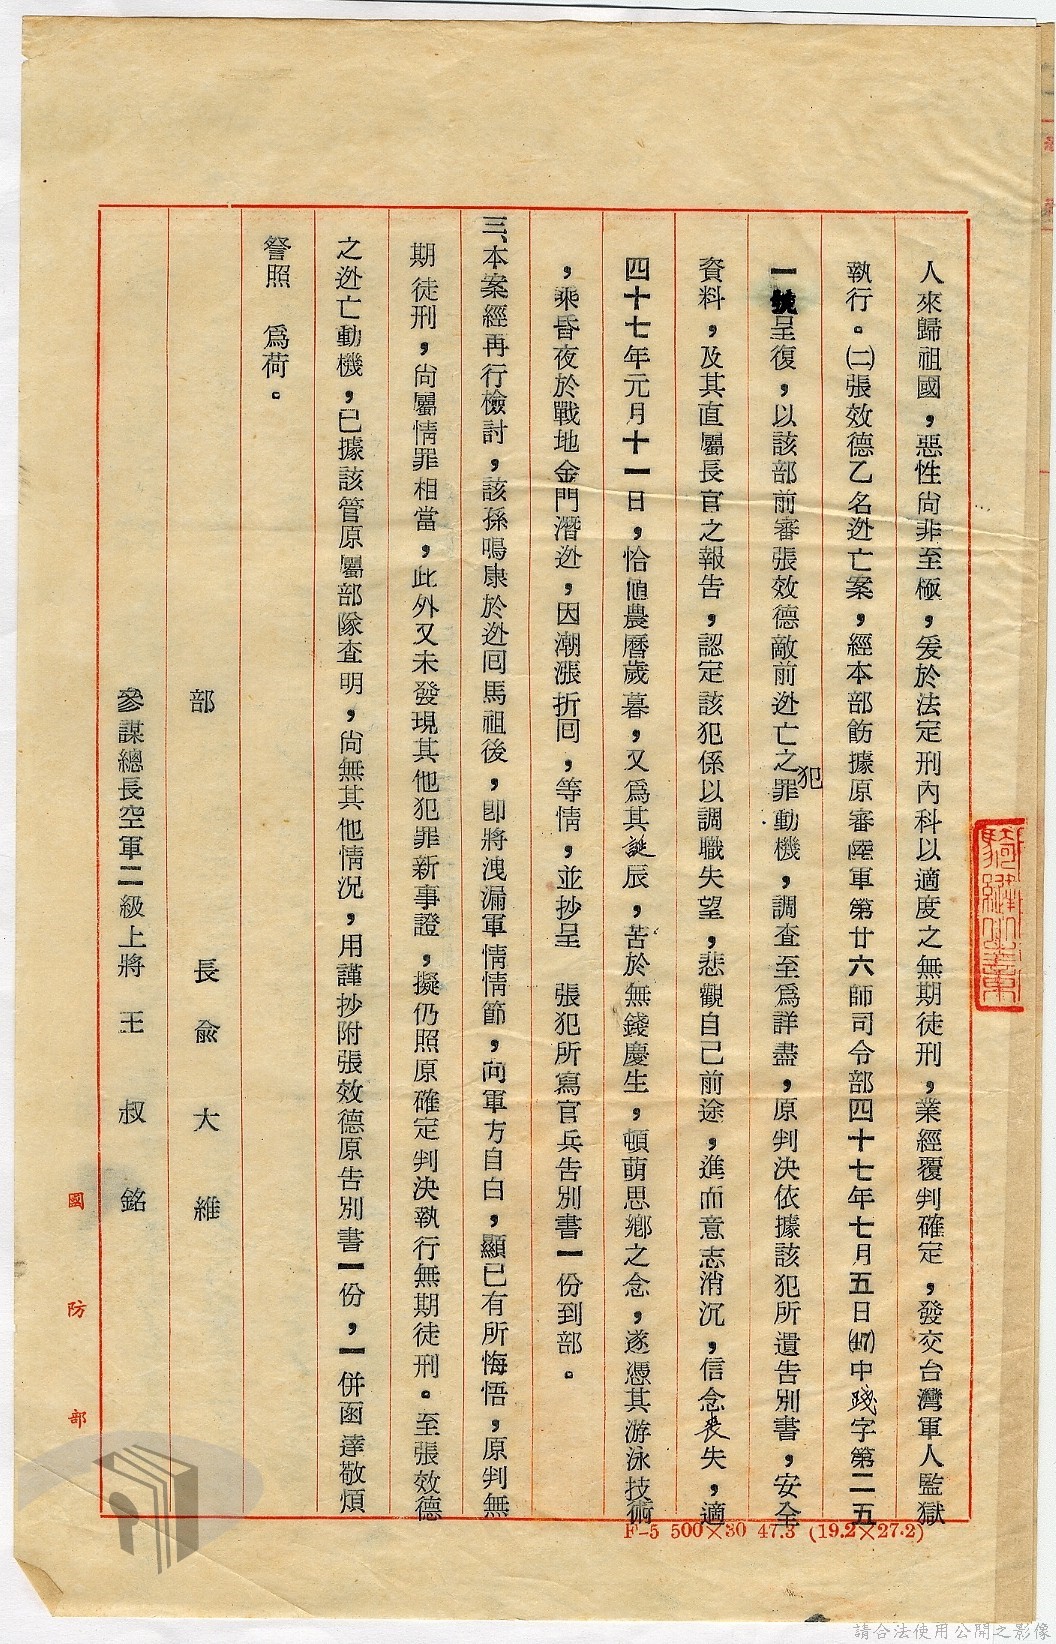 人來歸祖國，惡性尚非至極，爰於法定刑內科以適度之無期徒刑，業經覆判確定，發交台灣軍人監獄
執行。㈡張效德乙名逃亡案，經本部飭據原審陸軍第廿六師司令部四十七年七月五日(47)中踐字第二五
一號呈復，以該部前審張效德敵前逃亡之犯罪動機，調查至為詳盡，原判決依據該犯所遺告別書，安全
資料，及其直屬長官之報告，認定該犯係以調職失望，悲觀自己前途，進而意志消沉，信念喪失，適
四十七年元月十一日，恰值農曆歲暮，又為其誕辰，苦於無錢慶生，頓萌思鄉之念，遂憑其游泳技術
，乘昏夜於戰地金門潛逃，因潮漲折回，等情，並抄呈 張犯所寫官兵告別書一份到部。
三、本案經再行檢討，該孫鳴康於逃回馬祖後，即將洩漏軍情情節，向軍方自白，顯已有所悔悟，原判無
期徒刑，尚屬情罪相當，此外又未發現其他犯罪新事證，擬仍照原確定判決執行無期徒刑。至張效德
之逃亡動機，已據該管原屬部隊查明，尚無其他情況，用謹抄附張效德原告別書一份，一併函達敬煩
詧照 為荷。
部 長 俞 大 維
參謀總長空軍二級上將 王 叔 銘
國 防 部
F-5 500×30 47.3 (19.2×27.2)
請合法使用公開之影像